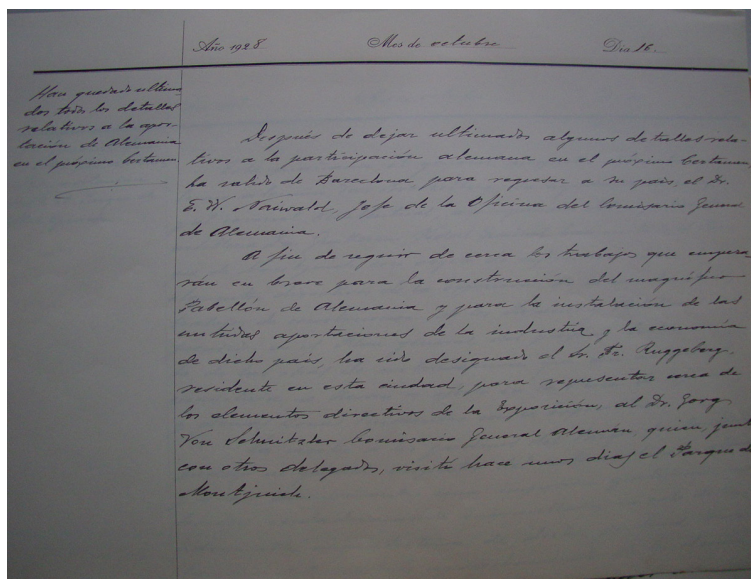 Año 1928. Mes de octubre Dia 16.
Han quedado ultima-
dos todos los detalles
relativos a la apor-
tación de Alemania
en el próximo Certamen
Después de dejar ultimados algunos detalles rela-
tivos a la participación alemana en el próximo Certamen
ha salido de Barcelona, para regresar a su país, el Dr.
E. W. Naiwald, Jefe de la Oficina del Comisario General
de Alemania.
A fin de seguir de cerca los trabajos que empeza-
rán en breve para la construcción del magnífico
Pabellón de Alemania y para la instalación de las
nutridas aportaciones de la industria y la economía
de dicho país, ha sido designado el Sr. Fr. Ruggeberg.
residente en esta ciudad, para representar cerca de
los elementos directivos de la Exposición, al Dr. Georg
Von Schnitzler Comisario General Alemán, quien, junto
con otros delegados, visitó hace unos dias el Parque de
Montjuich.